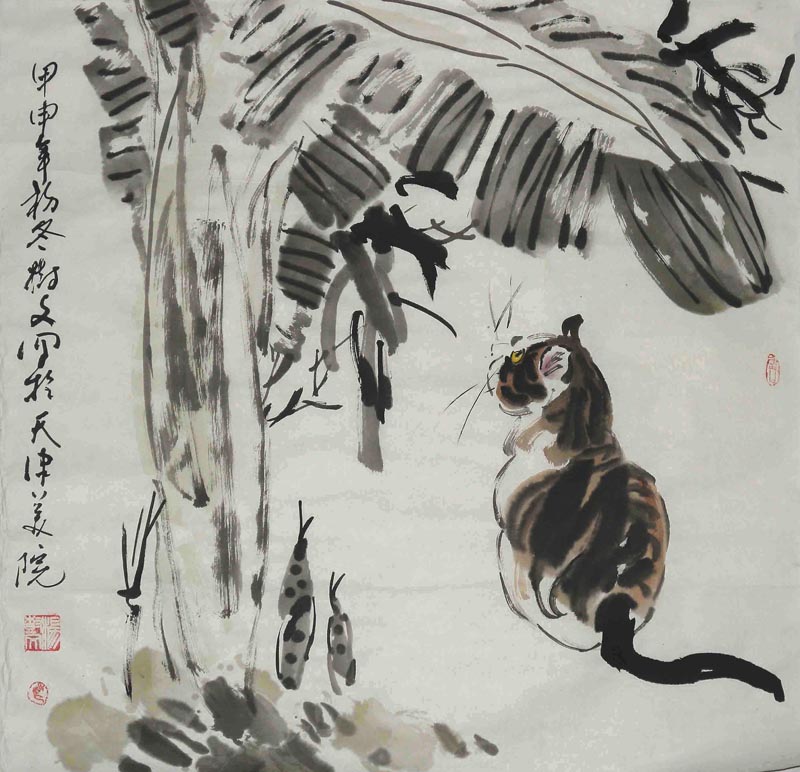 甲申年初冬树文写於天津美院